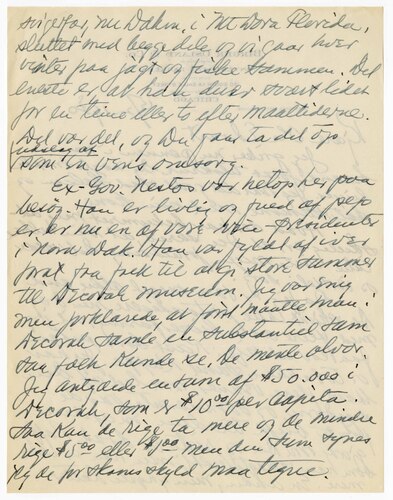 svigerfar, nu Dakin, i Mt Dora Florida,
sluttet med begge dele og vi gaar hver
vinter paa jagt og fiske sammen. Det
eneste er at han duer svært lidet
for en time eller to efter maaltiderne.
Det var det, og Du faar ta det op
som udslag af en vens omsorg.
Ex-Gov. Nestos var netop her paa
besøg. Han er livlig og fued af pep
er er nu en af vore vice-presidenter
i Nord Dak. Han var fyldt af iver
for at faa folk til at gi store summer
til Decorah museum. Jeg var enig
men forklarede at først maatte man i
Decorah samle en substantiel sum
saa folk kunde se, De mente alvor.
Jeg antydede en sum af $50.000 i
Decorah, som er $10.00 per capita.
Saa kan de rige ta mere og de mindre
rige $5.00 eller $1.00 men den sum synes
jeg de for skams skyld maa tegne.